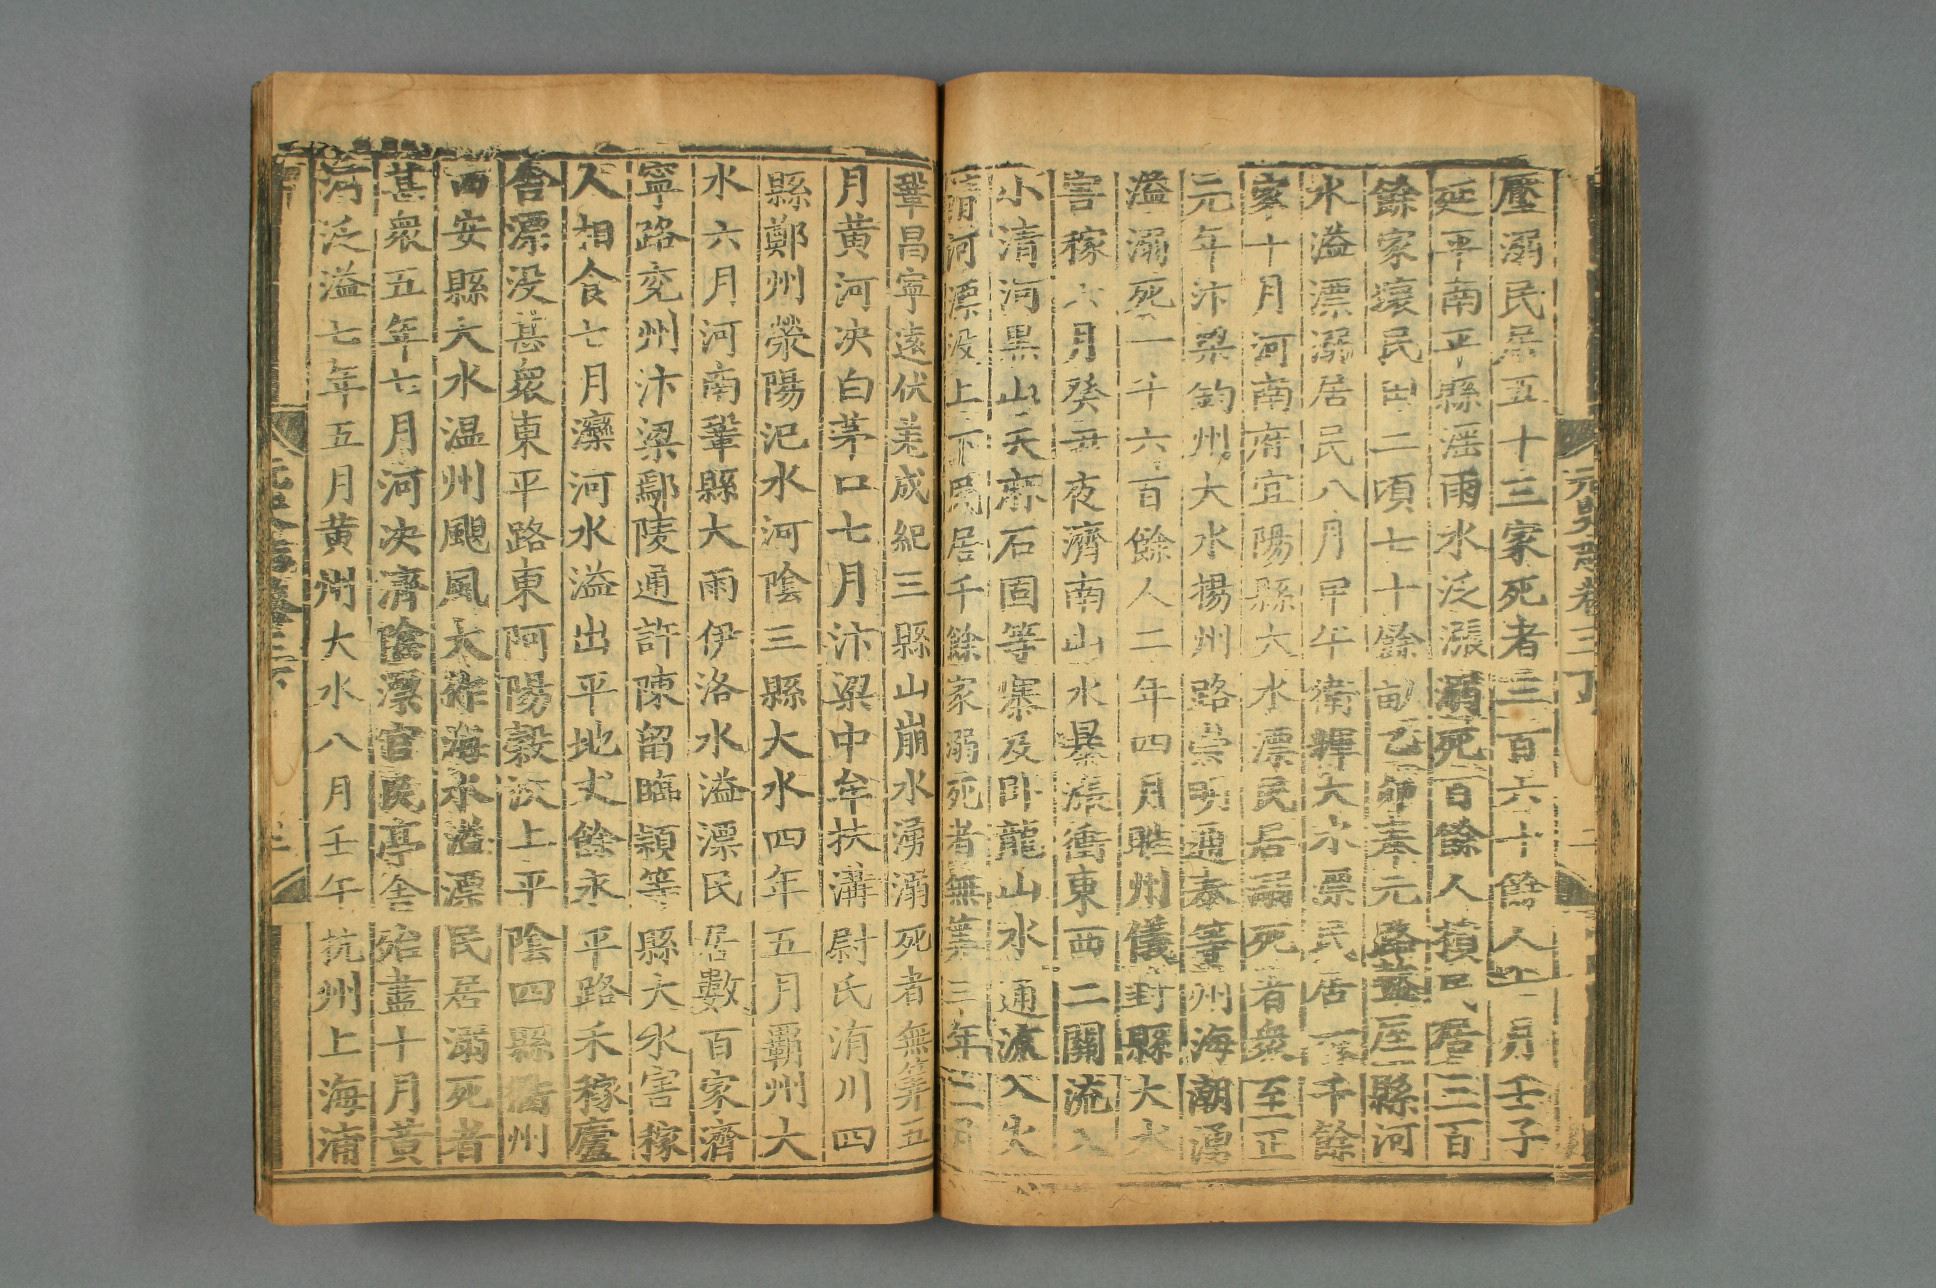 壓溺民居五十三家死者三百六十餘人 月壬子
延平南平縣淫雨水泛漲溺死百餘人損民居三百
餘家壞民田二頃七十餘畝乙卯奉元路盩厔縣河
水溢漂溺居民八月甲午衛輝大水漂民居一千餘
家十月河南府宜陽縣大水漂民居溺死者衆至正
元年汴梁鈞州大水揚州路崇明通泰等州海潮湧
溢溺死一千六百餘人二年四月睢州儀封縣大水
害稼六月癸丑夜濟南山水暴漲衝東西二關流入
小清河黑山天麻石固等寨及卧龍山水通流入大
清河漂没上下民居千餘家溺死者無筭三年二月
鞏昌寧遠伏羌成紀三縣山崩水湧溺死者無筭五
月黄河决白茅口七月汴梁中牟扶溝尉氏洧川四
縣鄭州滎陽汜水河陰三縣大水四年五月霸州大
水六月河南鞏縣大雨伊洛水溢漂民居數百家濟
寧路兖州汴梁鄢陵通許陳留臨潁等縣大水害稼
人相食七月灤河水溢出平地丈餘永平路禾稼廬
舍漂没甚衆東平路東阿陽穀汶上平陰四縣衢州
西安縣大水温州颶風大作海水溢漂民居溺死者
甚衆五年七月河决濟陰漂官民亭舍殆盡十月黄
河泛溢七年五月黄州大水八月壬午杭州上海浦